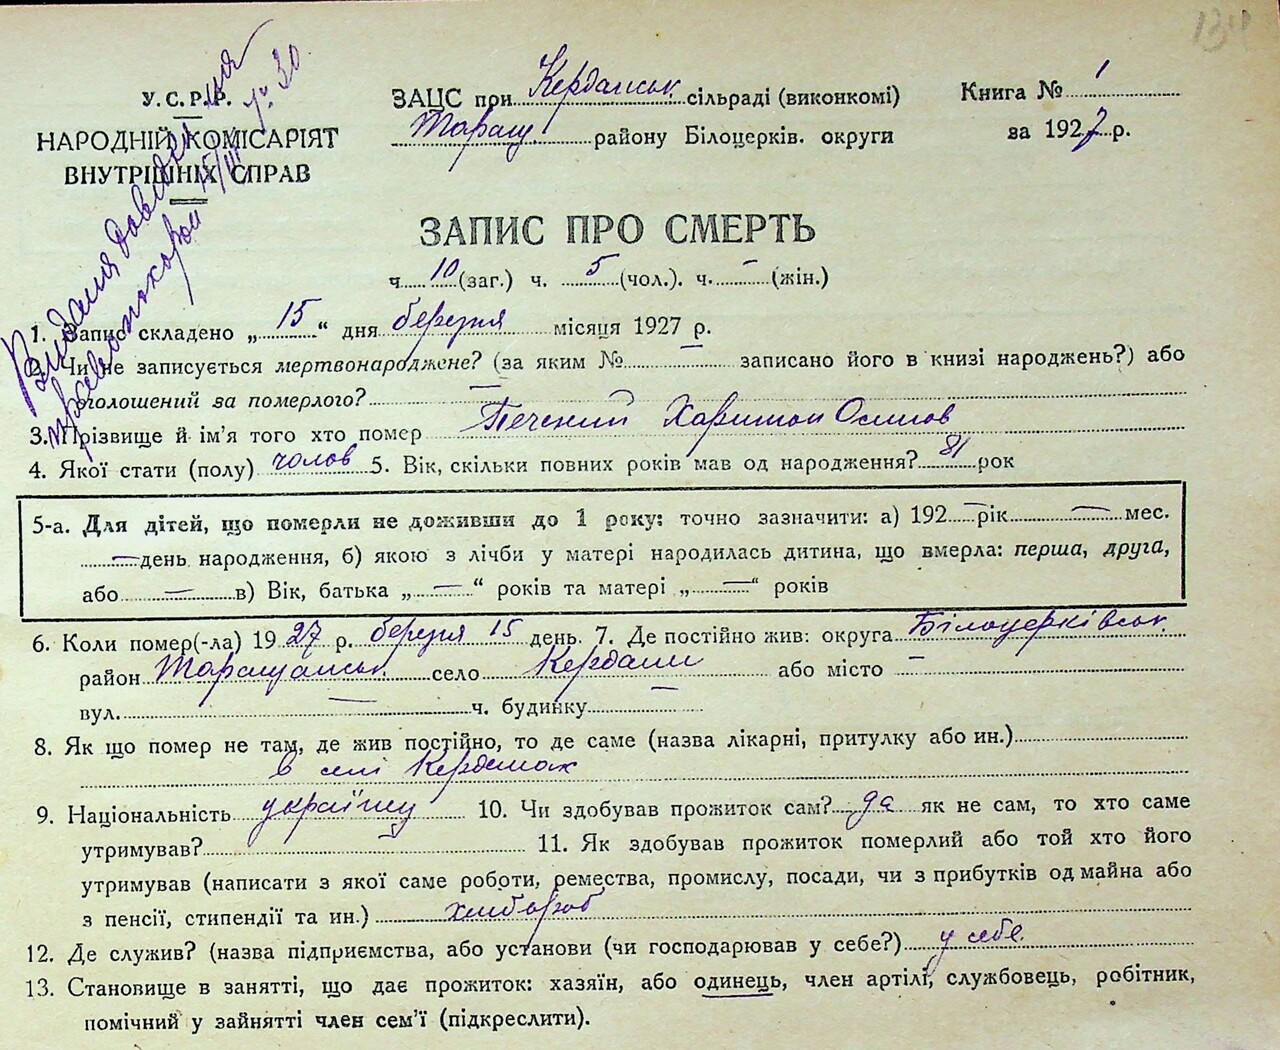 134
У.С.Р.Р.
НАРОДНІЙ КОМІСАРІЯТ
ВНУТРІШНІХ СПРАВ
Видана довідка
15/III 30
ЗАЦС при Керданськ. сільраді (виконкомі)
Таращ району Білоцерків. округи
Книга № 1
за 1927 р.
ЗАПИС ПРО СМЕРТЬ
ч. 10 (заг.) ч. 5 (чол.). ч. – (жін.)
1. Запис складено „ 15 “ дня березня місяця 1927 р.
2. Чи не записується мертвонароджене? (за яким № — записано його в книзі народжень?) або
оголошений за померлого? —
3. Прізвище й ім'я того хто помер Печений Харитон Осипов
4. Якої стати (полу) чолов 5. Вік, скільки повних років мав од народження? 81 рок
5-а. Для дітей, що померли не доживши до 1 року: точно зазначити: а) 192 — рік — мес.
— день народження, б) якою з лічби у матері народилась дитина, що вмерла: перша, друга,
або — в) Вік, батька „ — “ років та матері „ — “ років
6. Коли помер(-ла) 1927 р. березня 15 день. 7. Де постійно жив: округа Білоцерківськ.
район Таращанськ. село Кердани або місто –
вул. — ч. будинку —
8. Як що помер не там, де жив постійно, то де саме (назва лікарні, притулку або ин.)
в селі Керданах
9. Національність україн 10. Чи здобував прожиток сам? да як не сам, то хто саме
утримував? 11. Як здобував прожиток померлий або той хто його
утримував (написати з якої саме роботи, ремества, промислу, посади, чи з прибутків од майна або
з пенсії, стипендії та ин.) хлібороб
12. Де служив? (назва підприємства, або установи (чи господарював у себе?) у себе
13. Становище в занятті, що дає прожиток: хазяїн, або одинець, член артілі, службовець, робітник,
помічний у зайнятті член сем'ї (підкреслити).